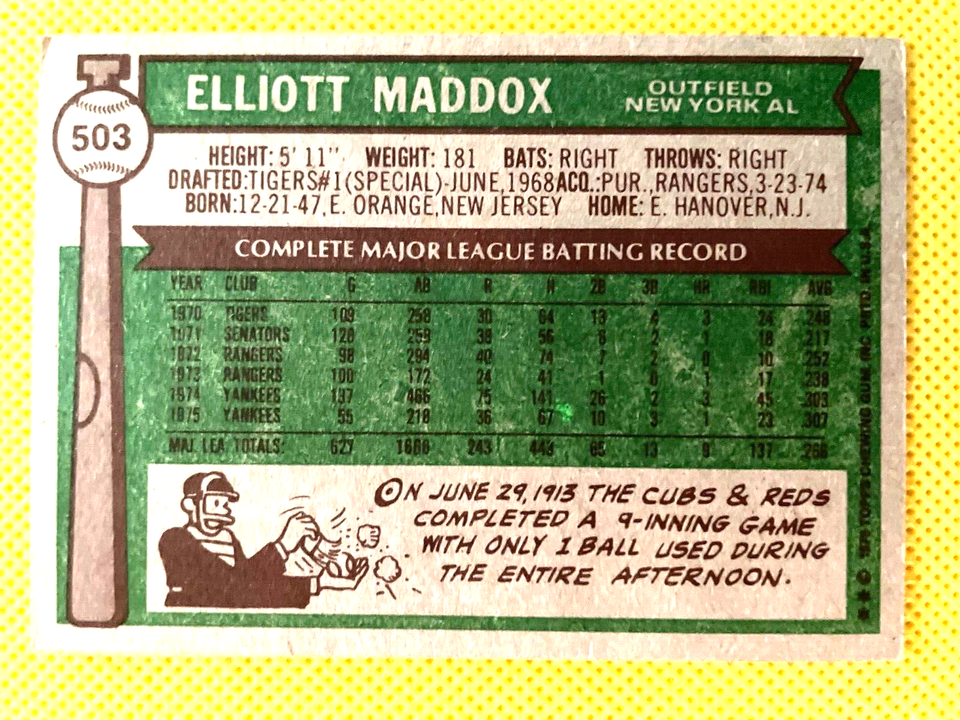 503
ELLIOTT MADDOX
OUTFIELD
NEW YORK AL
HEIGHT: 5' 11" WEIGHT: 181 BATS: RIGHT THROWS: RIGHT
DRAFTED:TIGERS#1(SPECIAL)-JUNE,1968 ACQ.:PUR.,RANGERS,3-23-74
BORN:12-21-47,E. ORANGE,NEW JERSEY HOME: E. HANOVER,N.J.
COMPLETE MAJOR LEAGUE BATTING RECORD
YEAR CLUB G AB R H 2B 3B HR RBI AVG
1970 TIGERS 109 258 30 64 13 4 3 24 .248
1971 SENATORS 128 259 38 56 8 2 1 18 .217
1972 RANGERS 98 294 40 74 7 2 0 10 .252
1973 RANGERS 100 172 24 41 1 0 1 17 .238
1974 YANKEES 137 466 75 141 26 2 3 45 .303
1975 YANKEES 55 218 36 67 10 3 1 23 .307
MAJ. LEA. TOTALS: 627 443 65 13 9 137 .266
ON JUNE 29, 1913 THE CUBS & REDS
COMPLETED A 9-INNING GAME
WITH ONLY 1 BALL USED DURING
THE ENTIRE AFTERNOON.
TOPPS CHEWING GUM, INC. PRTD. IN U.S.A.